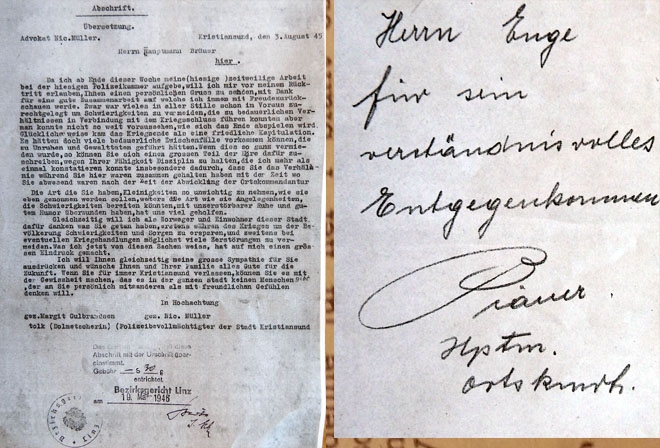 Abschrift.
Übersetzung.
Advokat Nic.Müller. Kristiansund, den 3.August 45
Herrn Hauptmann Bräuer
hier.
Da ich ab Ende dieser Woche meine(hiesige )zeitweilige Arbeit
bei der hiesigen Polizeikammer aufgebe,will ich mir vor meinem Rück-
tritt erlauben,Ihnen einen persönlichen Gruss zu senden,mit Dank
für eine gute Zusammenarbeit auf welche ich immer mit Freuden zurück-
schauen werde. Zwar war vieles in aller Stille schon im Voraus zu-
rechtgelegt um Schwierigkeiten zu vermeiden,die zu bedauerlichen Ver-
hältnissen in Verbindung mit dem Kriegsschluss führen konnten aber
man konnte nicht so weit voraussehen,wie sich das Ende abspielen wird.
Glücklicherweise kam das Kriegsende als eine friedliche Kapitulation.
Es hätten doch viele bedauerliche Zwischenfälle vorkommen können,die
zu Unruhen und Gewalttaten geführt hätten.Wenn dies so ganz vermie-
den wurde,so können Sie sich einen grossen Teil der Ehre dafür zu-
schreiben,wegen Ihrer Fähigkeit Disziplin zu halten,die ich mehr als
einmal konstatieren konnte insbesondere dadurch, dass Sie das Verhält-
nis während Sie hier waren zusammen gehalten haben mit der Zeit wo
Sie abwesend waren nach der Zeit der Abwicklung der Ortskommandantur
Die Art die Sie haben,Kleinigkeiten so unwichtig zu nehmen,wie sie
eben genommen werden sollen,weiters die Art wie sie Angelegenheiten,
die Schwierigkeiten bereiten könnten,mit unzerstörbarer Ruhe und gu-
tem Humor überwunden haben,hat uns viel geholfen.
Gleichzeitig will ich als Norweger und Einwohner dieser Stadt,
dafür danken was Sie getan haben,erstens während des Krieges um der Be-
völkerung Schwierigkeiten und Sorgen zu ersparen,und zweitens bei
eventuellen Kriegshandlungen möglichst viele Zerstörungen zu ver-
meiden.Was ich jetzt von diesen Sachen weiss, hat auf mich einen gros-
sen Eindruck gemacht.
Ich will Ihnen gleichzeitig meine grosse Sympathie für Sie
ausdrücken und wünsche Ihnen und Ihrer Familie alles Gute für die
Zukunft. Wenn Sie für immer Kristiansund verlassen, können Sie es mit
der Gewissheit machen, das es in der ganzen Stadt keinen Menschen gibt
,der an Sie persönlich anders als mit freundlichen Gefühlen
denken will.
In Hochachtung
gez.Margit Gulbrandsen gez. Nic. Müller
tolk (Dolmetscherin) (Polizeibevollmächtigter der Stadt Kristiansund
Abschrift mit der Urschrift über-
einstimmt.
Gebühr — S 30 g
entrichtet
Bezirksgericht Linz
am 19. Mai 1948
Herrn Enge
für sein
verständnisvolles
Entgegenkommen
Bräuer.
Hptm.
Ortskmdt.